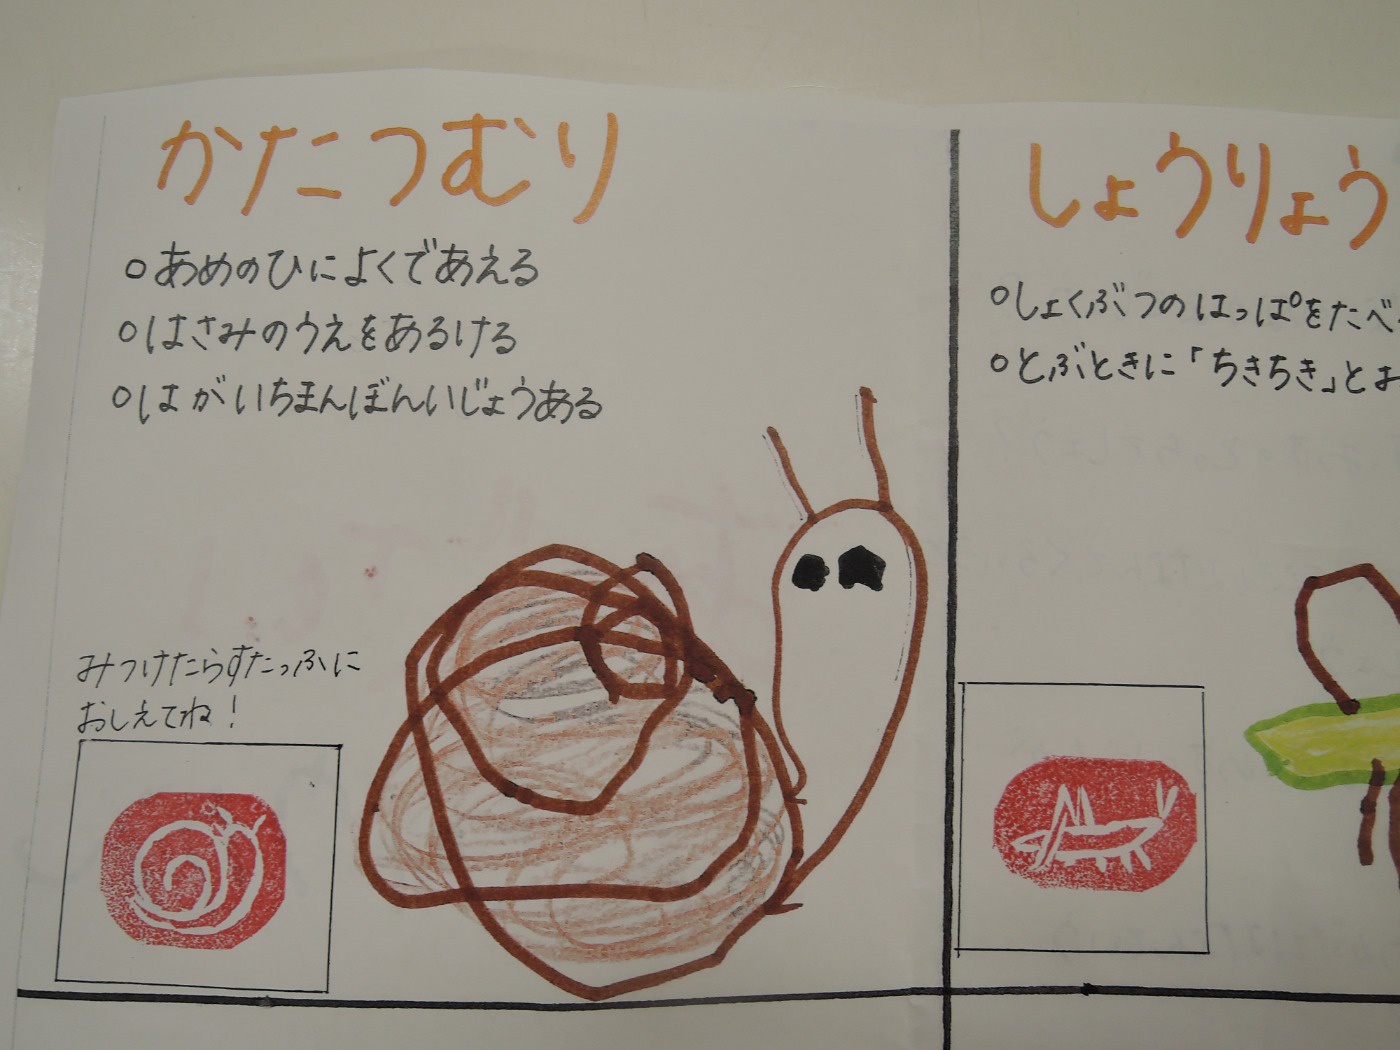 かたつむり
○あめのひによくであえる
○はさみのうえをあるける
○はがいちまんぼんいじょうある
みつけたらすたっふに
おしえてね!
しょうりょう
○しょくぶつのはっぱをたべ
○とぶときに「ちきちき」とお